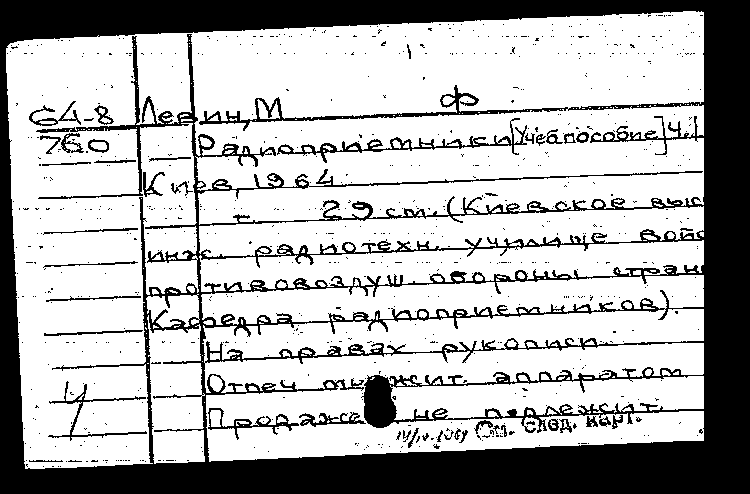 ф
64-8 Левин, М
760 Радиоприемники [Учеб пособие] Ч. I
Киев, 1964.
- 29 см. (Киевское выс
инж. радиотехн. училище войс
противовоздуш. обороны стран
Кафедра радиоприемников).
На правах рукописи.
Отпеч множит. аппаратом
Ч Продаже не подлежит.
См. след. карт.